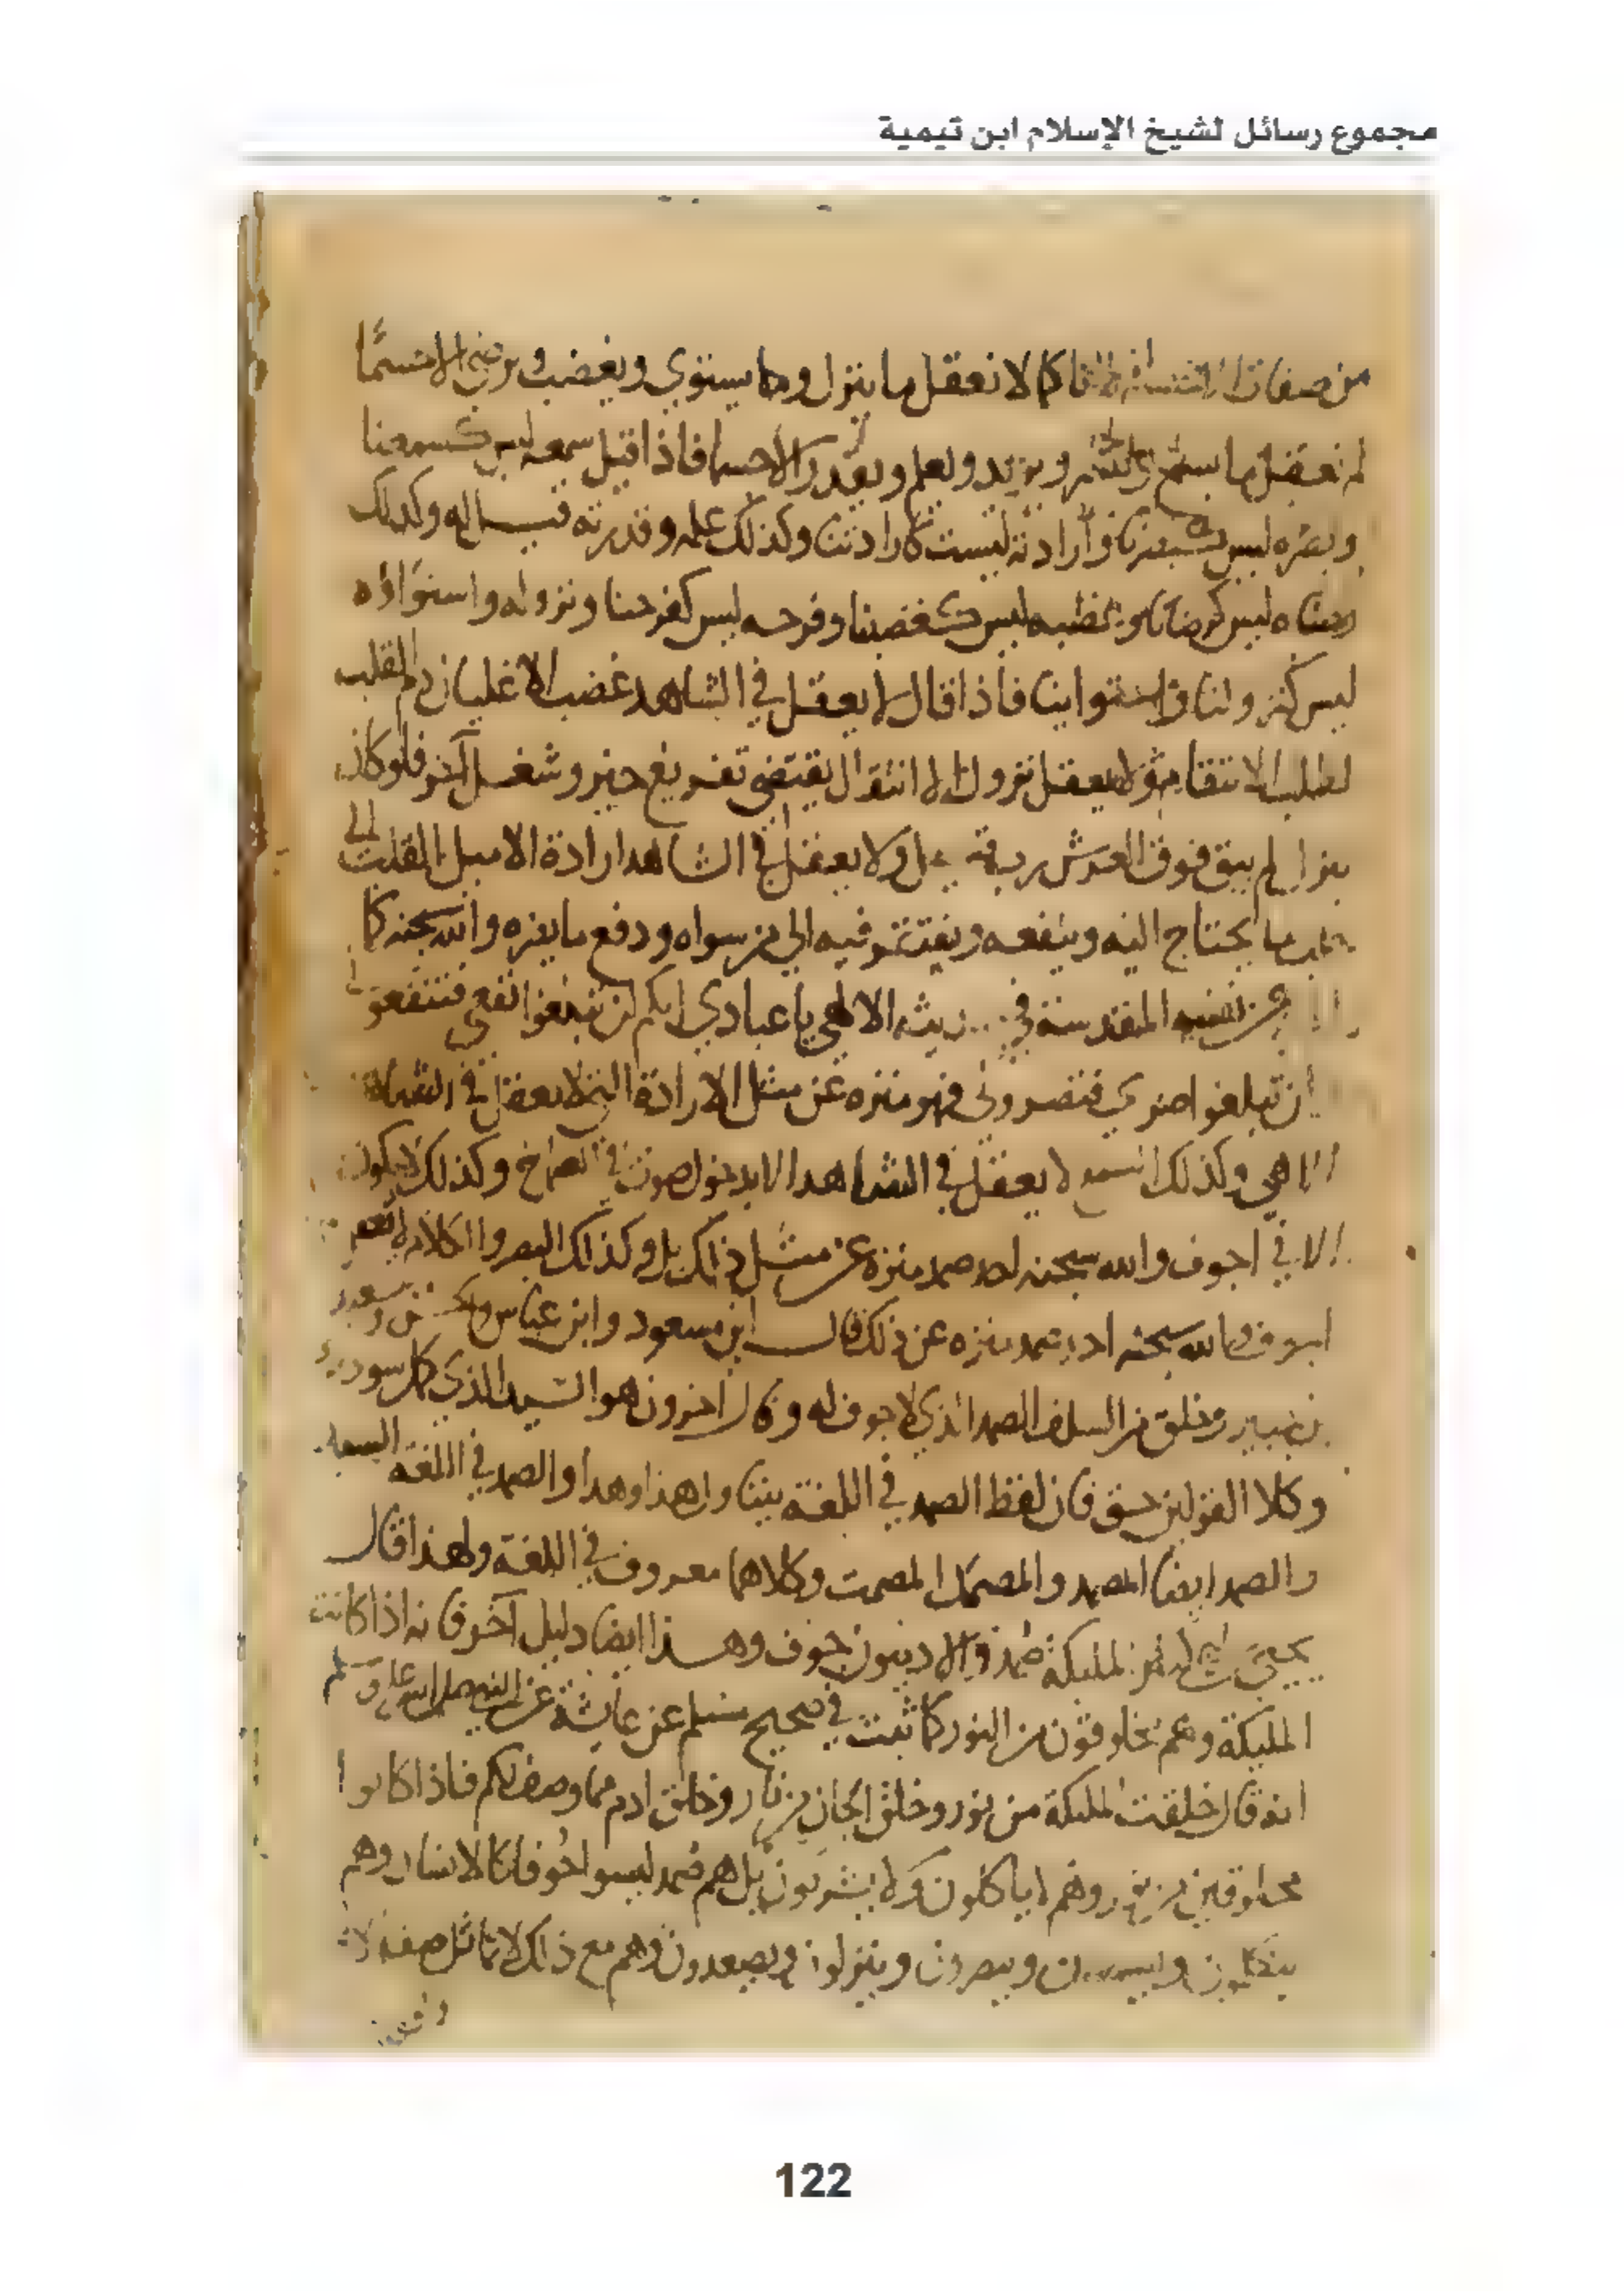 مجموع رسائل لشيخ الإسلام ابن تيمية
من صفات كما لا نعقل ما ينزل وما يستوي ويغضب ويرضى الا جسما
لم نعقل ما يسمع ويبصر ويريد ويعلم ويقدر الا جسما فاذا قيل سمعه ليس كسمعنا
وبصره ليس كبصرنا وارادته ليست كارادتنا وكذلك علمه وقدرته قيل له وكذلك
رضاه ليس كرضانا وغضبه ليس كغضبنا وفرحه ليس كفرحنا ونزوله واستواؤه
ليس كنزولنا واستوائنا فاذا قال لا يعقل في الشاهد غضب الا غليان دم القلب
لطلب الانتقام ولا يعقل نزول الا انتقال يقتضي تفريغ حيز وشغل آخر فلو كان
ينزل لم يبق فوق العرش رب قيل ولا يعقل في الشاهد ارادة الا ميل القلب الى
جلب ما يحتاج اليه وينفعه ويفتقر فيه الى من سواه ودفع ما يضره والله سبحنه كما
نفسه المقدسة في الالهي يا عبادي انكم لن تبلغوا نفعي فتنفعوني
ان تبلغوا ضري فتضروني فهو منزه عن مثل الارادة التي لا يعقل في الشاهد
الا هي وكذلك السمع لا يعقل في الشاهد الا بدخول صوت في الصماخ وكذلك لا يكون
الا في اجوف والله سبحنه احد صمد منزه عن مثل ذلك بل وكذلك البصر والكلام
اجوف والله سبحنه احد صمد منزه عن ذلك قال ابن مسعود وابن عباس والحسن وسعيد
بن جبير وخلق من السلف الصمد الذي لا جوف له وقال آخرون هو السيد الذي كمل سودده
وكلا القولين حق فان لفظ الصمد في اللغة يتناول هذا وهذا والصمد في اللغة السيد
والصمد ايضا المصمد والمصمد المصمت وكلاهما معروف في اللغة ولهذا قال
يحيى المليكة صمد والادميون جوف وهذا ايضا دليل آخر فانه اذا كانت
المليكة وهم مخلوقون من النور كما ثبت في صحيح مسلم عن عايشة عن النبي صلى الله عليه وسلم
انه قال خلقت المليكة من نور وخلق الجان من نار وخلق ادم مما وصف لكم فاذا كانوا
مخلوقين من نور وهم لا ياكلون ولا يشربون بل هم صمد ليسوا جوفا كالانسان وهم
يتكلمون ويسمعون ويبصرون وينزلون ويصعدون وهم مع ذلك لا تماثل صفاتهم
122